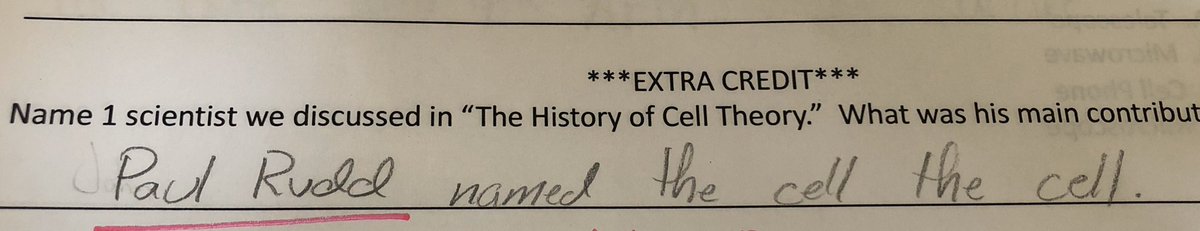 ***EXTRA CREDIT***
Name 1 scientist we discussed in “The History of Cell Theory.” What was his main contribut
Paul Rudd named the cell the cell.